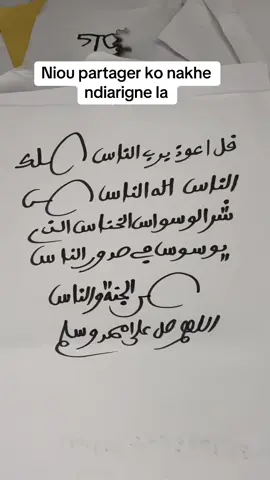 STC
Niou partager ko nakhe
ndiarigne la
قل اعوذ برب الناس ملك
الناس اله الناس من
شر الوسواس الخناس الذي
يوسوس في صدور الناس
من الجنة والناس
اللهم صل على محمد وسلم